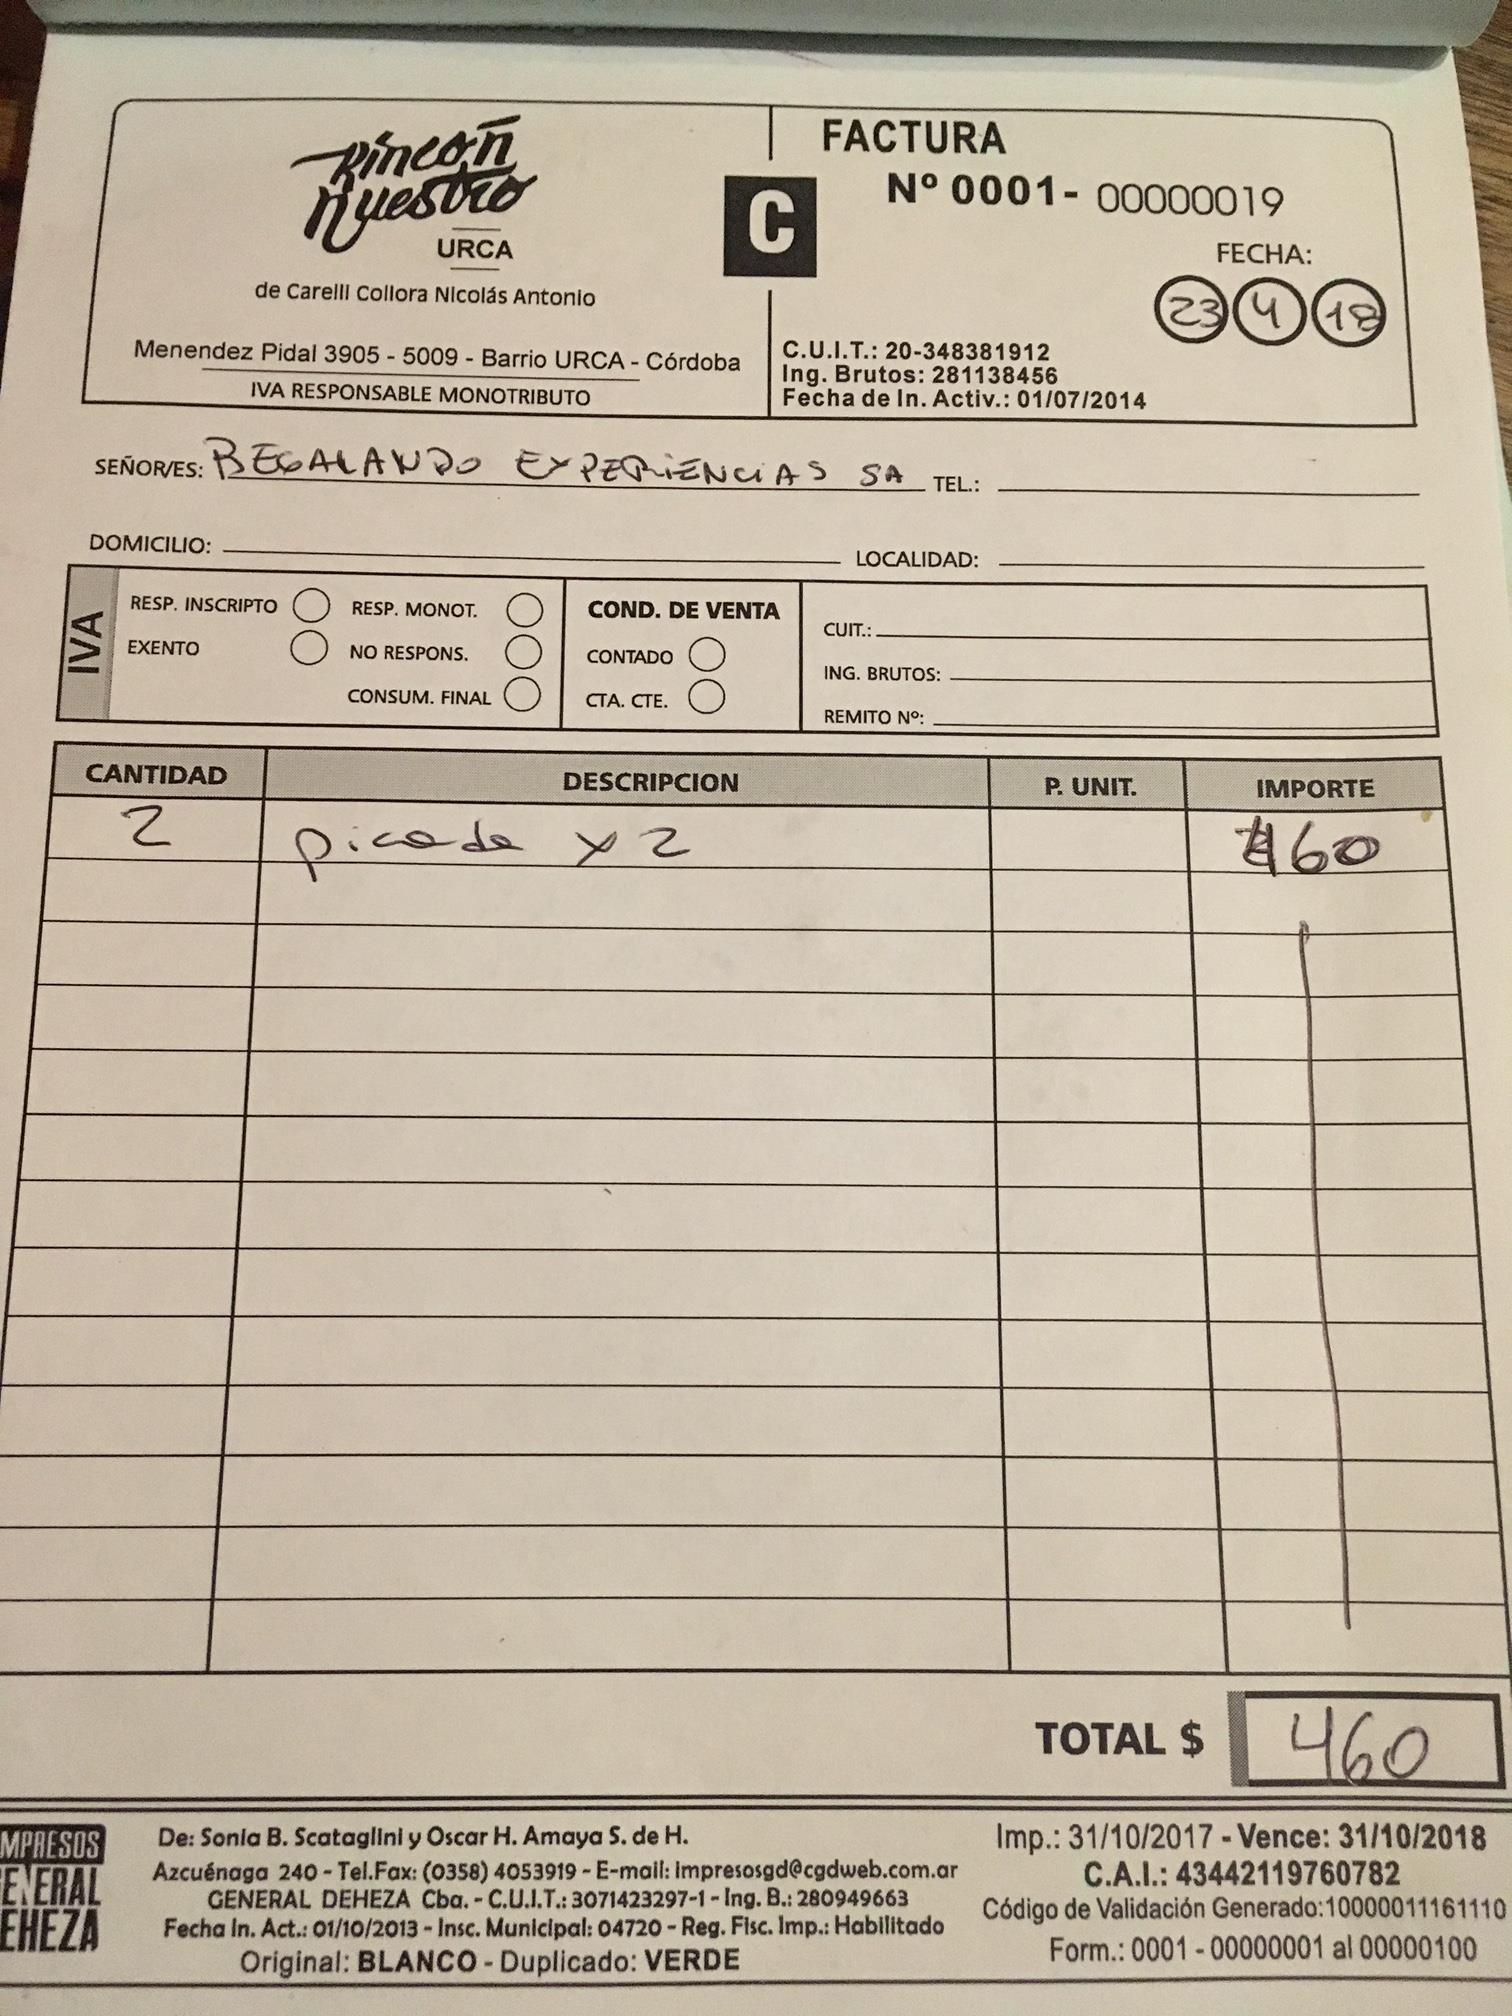 Rincón Nuestro
URCA
de Carelli Collora Nicolás Antonio
Menendez Pidal 3905 - 5009 - Barrio URCA - Córdoba
IVA RESPONSABLE MONOTRIBUTO
C
FACTURA
Nº 0001- 00000019
FECHA:
23 4 18
C.U.I.T.: 20-348381912
Ing. Brutos: 281138456
Fecha de In. Activ.: 01/07/2014
SEÑOR/ES: REGALANDO EXPERIENCIAS SA TEL.:
DOMICILIO: LOCALIDAD:
IVA
RESP. INSCRIPTO RESP. MONOT.
EXENTO NO RESPONS.
CONSUM. FINAL
COND. DE VENTA
CONTADO
CTA. CTE.
CUIT.:
ING. BRUTOS:
REMITO Nº:
CANTIDAD DESCRIPCION P. UNIT. IMPORTE
2 picada x 2 460
TOTAL $ 460
IMPRESOS
GENERAL
DEHEZA
De: Sonia B. Scataglini y Oscar H. Amaya S. de H.
Azcuénaga 240 - Tel.Fax: (0358) 4053919 - E-mail: impresosgd@cgdweb.com.ar
GENERAL DEHEZA Cba. - C.U.I.T.: 307142329​7-1 - Ing. B.: 280949663
Fecha In. Act.: 01/10/2013 - Insc. Municipal: 04720 - Reg. Fisc. Imp.: Habilitado
Original: BLANCO - Duplicado: VERDE
Imp.: 31/10/2017 - Vence: 31/10/2018
C.A.I.: 43442119760782
Código de Validación Generado:10000011161110
Form.: 0001 - 00000001 al 00000100